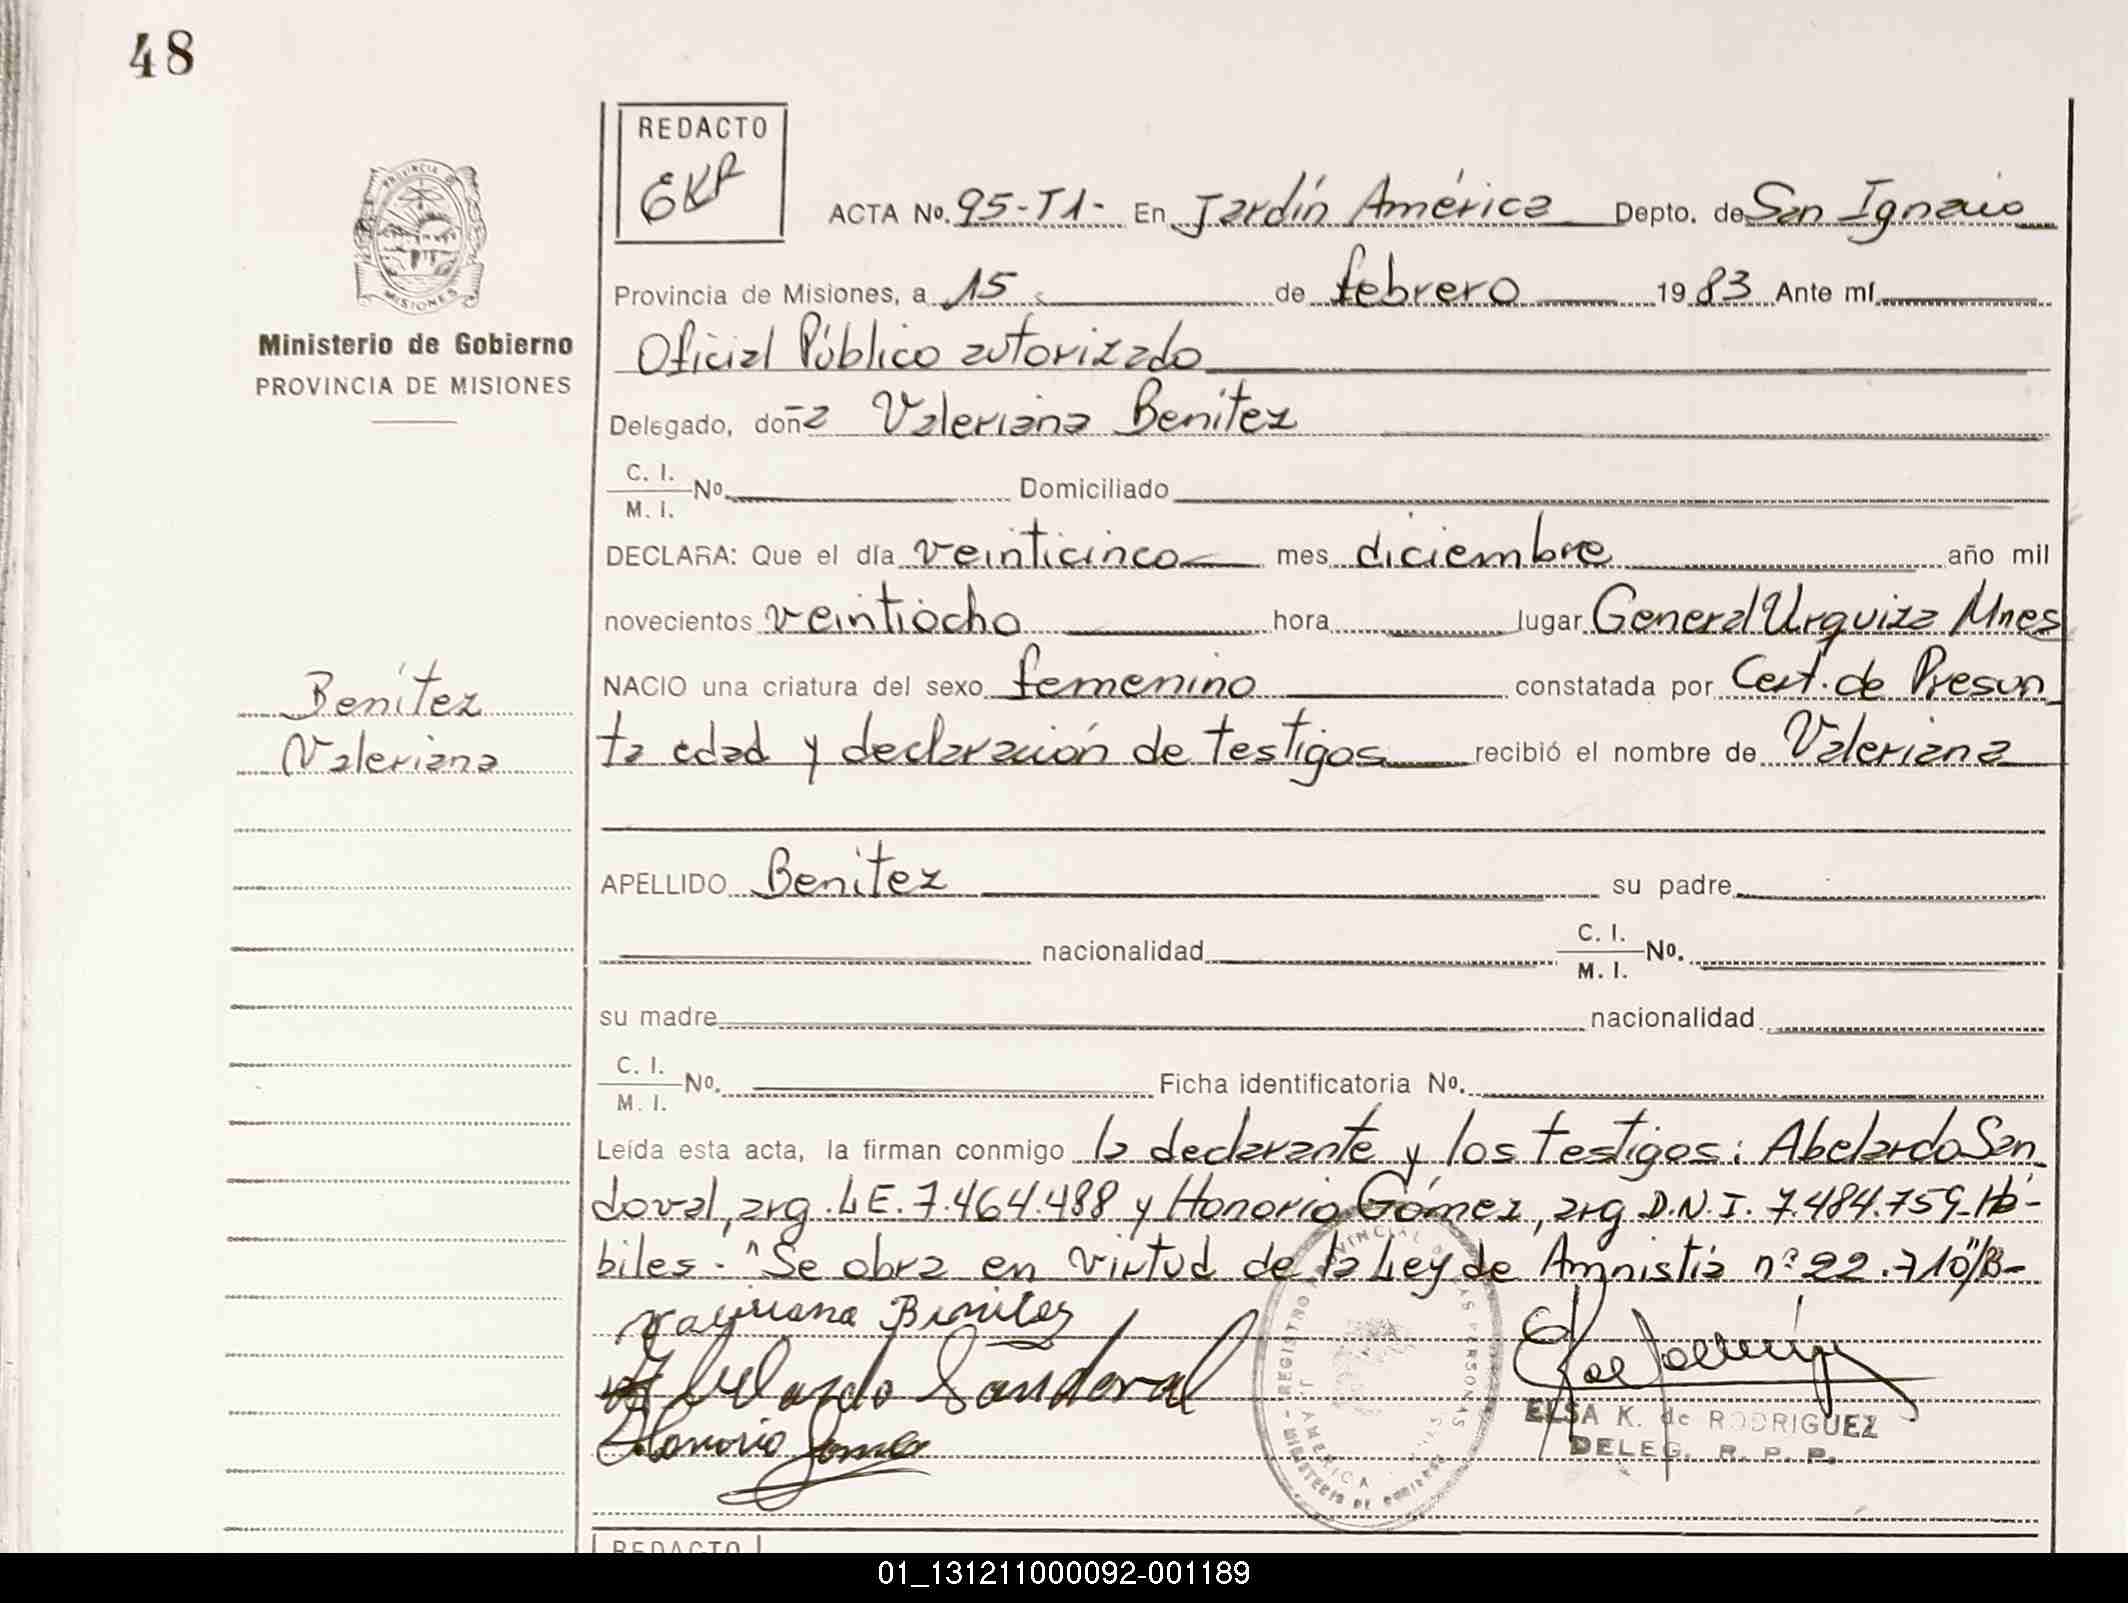 48
REDACTO
EKR
ACTA No. 95-T1- En Jardín América Depto. de San Ignacio
PROVINCIA DE
MISIONES
Provincia de Misiones, a 15 de febrero 1983 Ante mí
Ministerio de Gobierno
PROVINCIA DE MISIONES
Oficial Público autorizado
Delegado, doña Valeriana Benítez
C. I.
M. I. No. Domiciliado
DECLARA: Que el día veinticinco mes diciembre año mil
novecientos veintiocho hora lugar General Urquiza Mnes
NACIO una criatura del sexo femenino constatada por Cert. de Presun
Benítez
Valeriana
ta edad y declaración de testigos recibió el nombre de Valeriana
APELLIDO Benítez su padre
nacionalidad C. I.
M. I. No.
su madre nacionalidad
C. I.
M. I. No. Ficha identificatoria No.
Leída esta acta, la firman conmigo la declarante y los testigos: Abelardo San
doval, arg. L E. 7.464.488 y Honorio Gómez, arg D.N.I. 7.484.759-Há-
biles.- "Se obra en virtud de la Ley de Amnistía nº 22.710"/B-
Valeriana Benites
Abelardo Sandoval
Honorio Gomez
ELSA K. de RODRIGUEZ
DELEG. R. P. P.
REDACTO
01_131211000092-001189